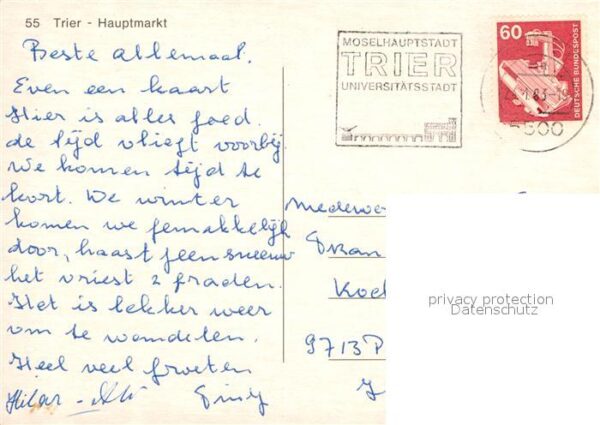 55 Trier - Hauptmarkt
Beste allemaal.
Even een kaart
Hier is alles goed.
de tijd vliegt voorbij
We komen tijd te
kort. De winter
komen we gemakkelijk
door, haast geen sneeuw
het vriest 2 graden.
Het is lekker weer
om te wandelen.
Heel veel groeten
MOSELHAUPTSTADT
TRIER
UNIVERSITÄTSSTADT
60
DEUTSCHE BUNDESPOST
5500
9713 P
privacy protection
Datenschutz